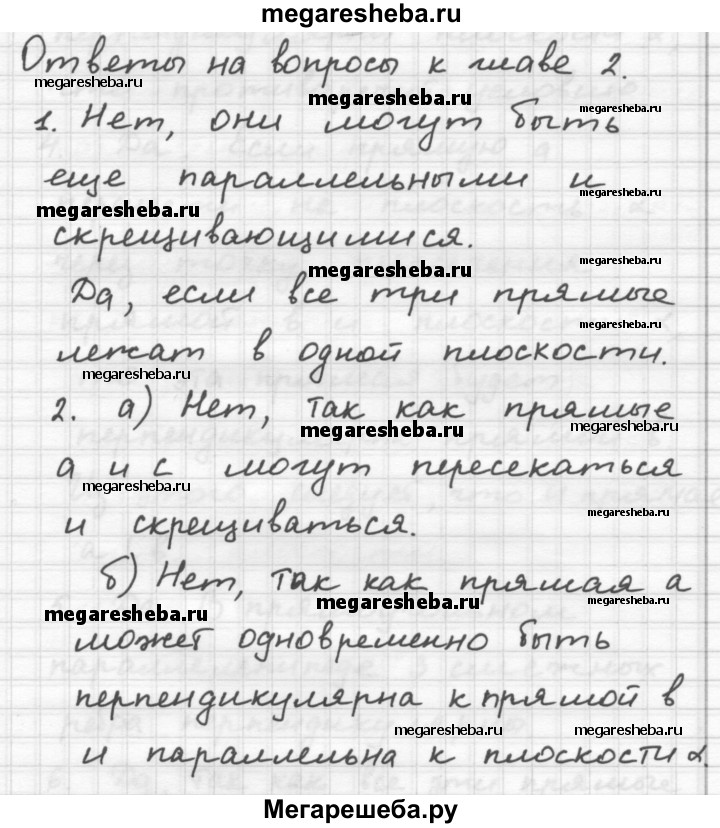 megaresheba.ru
Ответы на вопросы к главе 2.
megaresheba.ru
megaresheba.ru
1. Нет, они могут быть
еще параллельными и
megaresheba.ru
megaresheba.ru
скрещивающимися.
megaresheba.ru
megaresheba.ru
Да, если все три прямые
megaresheba.ru
лежат в одной плоскости.
megaresheba.ru
2. а) Нет, так как прямые
megaresheba.ru
megaresheba.ru
а и с могут пересекаться
megaresheba.ru
megaresheba.ru
и скрещиваться.
б) Нет, так как прямая а
megaresheba.ru
megaresheba.ru
megaresheba.ru
может одновременно быть
перпендикулярна к прямой в
megaresheba.ru
megaresheba.ru
и параллельна к плоскости α.
Мегарешеба.ру